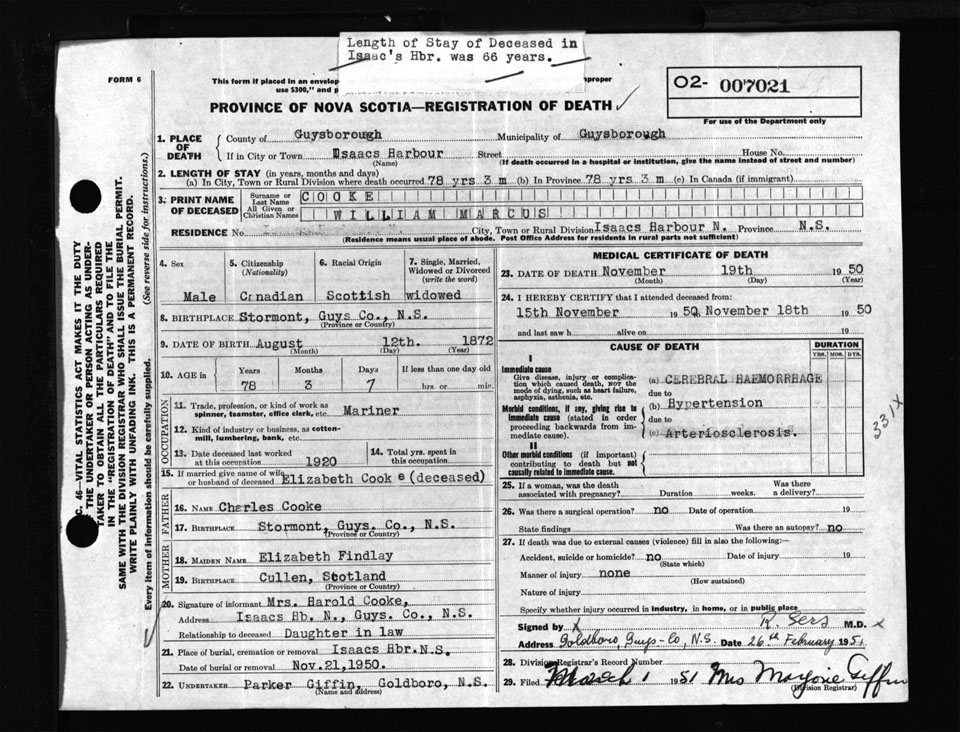 Length of Stay of Deceased in
Isaac's Hbr. was 66 years.
FORM 6
This form if placed in an envelop
improper
use $300," and
PROVINCE OF NOVA SCOTIA—REGISTRATION OF DEATH ✓
O2- 007021
For use of the Department only
1. PLACE OF DEATH
County of Guysborough Municipality of Guysborough
If in City or Town Isaacs Harbour Street House No.
(Name) (If death occurred in a hospital or institution, give the name instead of street and number)
2. LENGTH OF STAY (in years, months and days)
(a) In City, Town or Rural Division where death occurred 78 yrs 3 m (b) In Province 78 yrs 3 m (c) In Canada (if immigrant)
3. PRINT NAME OF DECEASED
Surname or Last Name COOKE
All Given or Christian Names WILLIAM MARCUS
RESIDENCE No. City, Town or Rural Division Isaacs Harbour N. Province N.S.
(Residence means usual place of abode. Post Office Address for residents in rural parts not sufficient)
4. Sex Male
5. Citizenship (Nationality) Canadian
6. Racial Origin Scottish
7. Single, Married, Widowed or Divorced (write the word) widowed
8. BIRTHPLACE Stormont, Guys Co., N.S.
(Province or Country)
9. DATE OF BIRTH August 12th. 1872
(Month) (Day) (Year)
10. AGE in Years Months Days If less than one day old
78 3 7 hrs. or min.
OCCUPATION
11. Trade, profession, or kind of work as Mariner
spinner, teamster, office clerk, etc.
12. Kind of industry or business, as cotton-
mill, lumbering, bank, etc.
13. Date deceased last worked at this occupation 1920
14. Total yrs. spent in this occupation
15. If married give name of wife or husband of deceased Elizabeth Cooke (deceased)
FATHER
16. Name Charles Cooke
17. Birthplace Stormont, Guys. Co., N.S.
(Province or Country)
MOTHER
18. Maiden Name Elizabeth Findlay
19. Birthplace Cullen, Scotland
(Province or Country)
20. Signature of informant Mrs. Harold Cooke,
Address Isaacs Hb. N., Guys. Co., N.S.
Relationship to deceased Daughter in law
21. Place of burial, cremation or removal Isaacs Hbr. N.S.
Date of burial or removal Nov. 21, 1950.
22. UNDERTAKER Parker Giffin, Goldboro, N.S.
(Name and address)
MEDICAL CERTIFICATE OF DEATH
23. DATE OF DEATH November 19th 1950
(Month) (Day) (Year)
24. I HEREBY CERTIFY that I attended deceased from:
15th November 1950, November 18th 1950
and last saw h alive on 19
CAUSE OF DEATH
DURATION
YRS. MOS. DYS.
I
Immediate cause
Give disease, injury or complica-
tion which caused death, NOT the
mode of dying, such as heart failure,
asphyxia, asthenia, etc.
(a) CEREBRAL HAEMORRHAGE
due to
Morbid conditions, if any, giving rise to
immediate cause (stated in order
proceeding backwards from im-
mediate cause).
(b) Hypertension
due to
(c) Arteriosclerosis.
331X
II
Other morbid conditions (if important)
contributing to death but not
causally related to immediate cause.
25. If a woman, was the death associated with pregnancy? Duration weeks. Was there a delivery?
26. Was there a surgical operation? no Date of operation 19
State findings Was there an autopsy? no
27. If death was due to external causes (violence) fill in also the following:—
Accident, suicide or homicide? no Date of injury 19
(State which)
Manner of injury none
(How sustained)
Nature of injury
Specify whether injury occurred in industry, in home, or in public place
Signed by X R. Sers M.D. X
Address Goldboro, Guys-Co, N.S. Date 26th February 1951
28. Division Registrar's Record Number
29. Filed March 1 1951 Mrs Marjorie Giffin
(Division Registrar)
C. 46—VITAL STATISTICS ACT MAKES IT THE DUTY
OF THE UNDERTAKER OR PERSON ACTING AS UNDER-
TAKER TO OBTAIN ALL THE PARTICULARS REQUIRED
IN THE "REGISTRATION OF DEATH" AND TO FILE THE
SAME WITH THE DIVISION REGISTRAR WHO SHALL ISSUE THE BURIAL PERMIT.
WRITE PLAINLY WITH UNFADING INK. THIS IS A PERMANENT RECORD.
Every item of information should be carefully supplied. (See reverse side for instructions.)